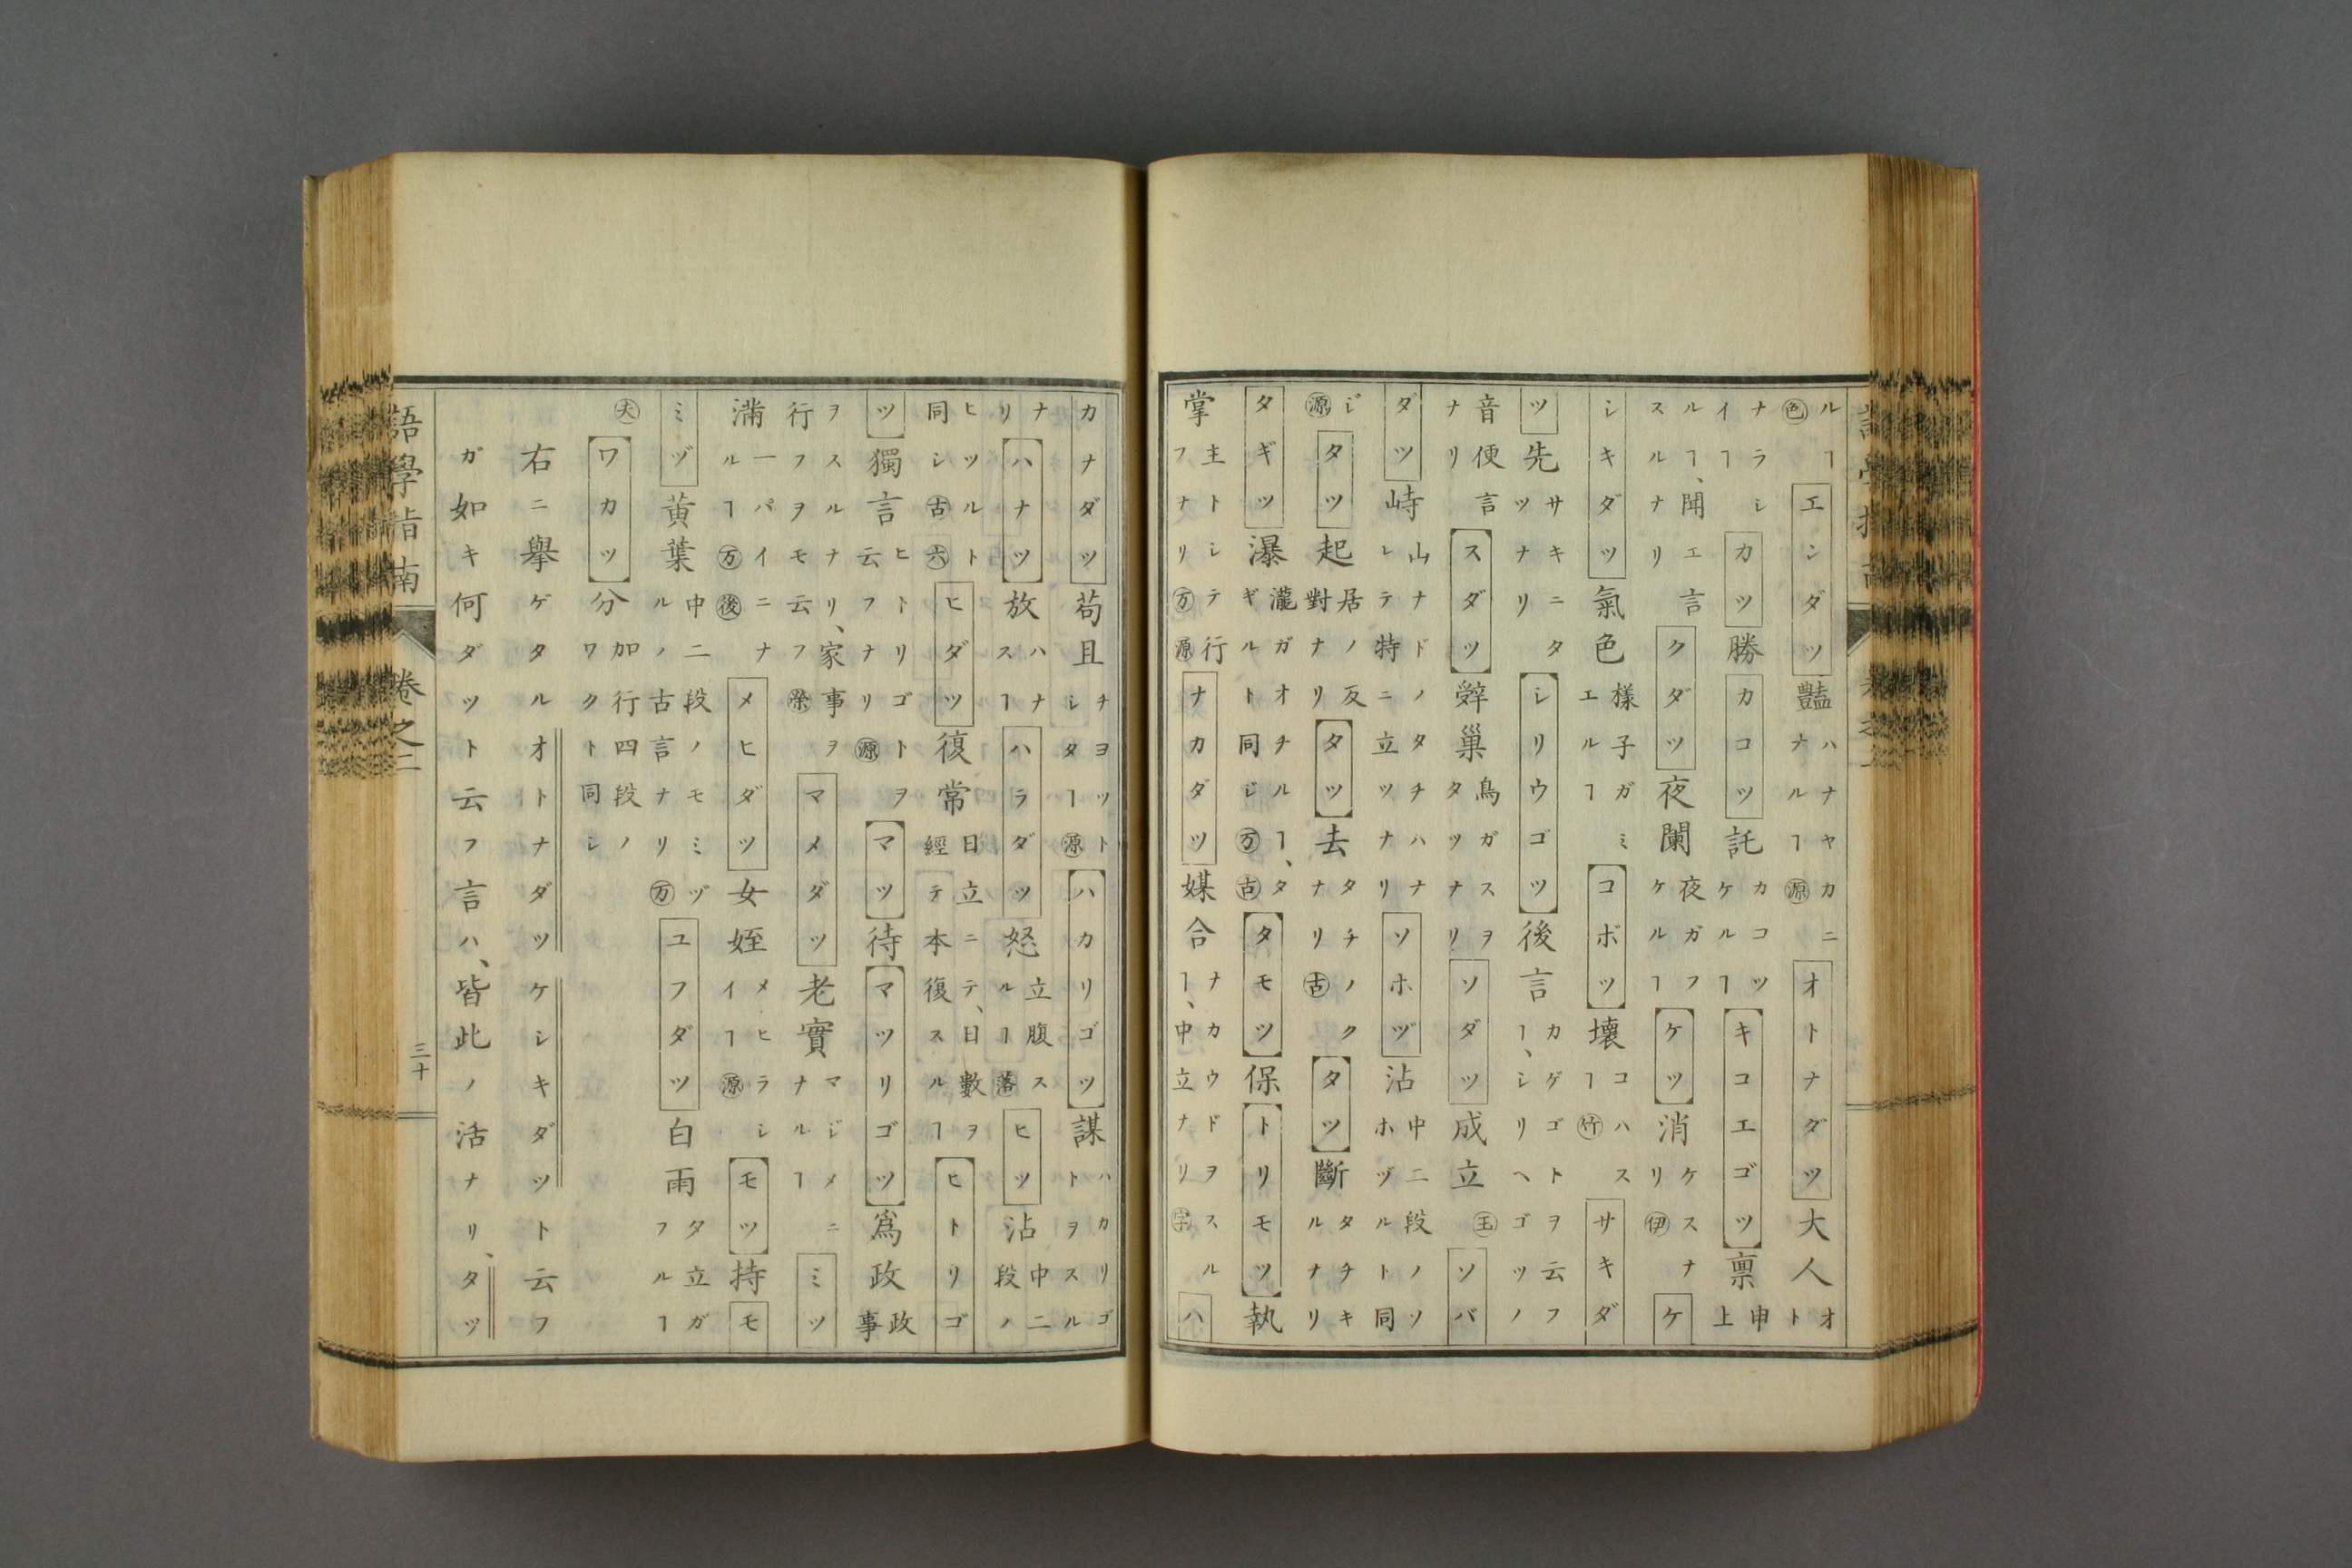 ルヿ色エンダツ豔ハナヤカニナルヿ源オトナダツ大人オト
ナラシイヿカツ勝カコツ託カコツケルヿキコエゴツ禀申上
ルヿ、聞エ言スルナリクダツ夜闌夜ガフケルヿケツ消ケスナリ伊ケ
シキダツ氣色樣子ガミエルヿコボツ壞コハスヿ竹サキダ
ツ先サキニタツナリシリウゴツ後言カゲゴトヲ云フヿ、シリヘゴツノ玉
音便言ナリスダツ辤巢鳥ガスヲタツナリソダツ成立ソバ
ダツ峙山ナドノタチハナレテ特ニ立ツナリソホヅ沾中二段ノソホヅルト同
ジ源タツ起居ノ反對ナリタツ去タチノクナリ古タツ斷タチキルナリ
タギツ瀑瀧ガオチルヿ、タギルト同じ万古タモツ保トリモツ執
掌主トシテ行フナリ万源ナカダツ媒合ナカウドヲスルヿ、中立ナリ宇ハ
カナダツ苟且チヨツトシタヿ源ハカリゴツ謀ハカリゴトヲスル
ナリハナツ放ハナスヿハラダツ怒立腹スルヿ落ヒツ沾中二段ノ
ヒツルト同シ古六ヒダツ復常日立ニテ、日數ヲ經テ本復スルヿヒトリゴ
ツ獨言ヒトリゴトヲ云フナリ源マツ待マツリゴツ爲政政事
ヲスルナリ、家事ヲ行フヲモ云フ榮マメダツ老實マジメニナルヿミツ
滿一パイニナルヿ万後メヒダツ女姪メヒラシイヿ源モツ持モ
ミヅ黄葉中二段ノモミヅルノ古言ナリ万ユフダツ白雨夕立ガフルヿ
大ワカツ分加行四段ノワクト同シ
右ニ擧ゲタルオトナダツケシキダツト云フ
ガ如キ何ダツト云フ言ハ、皆此ノ活ナリ、タツ
語學指南 卷之二 三十